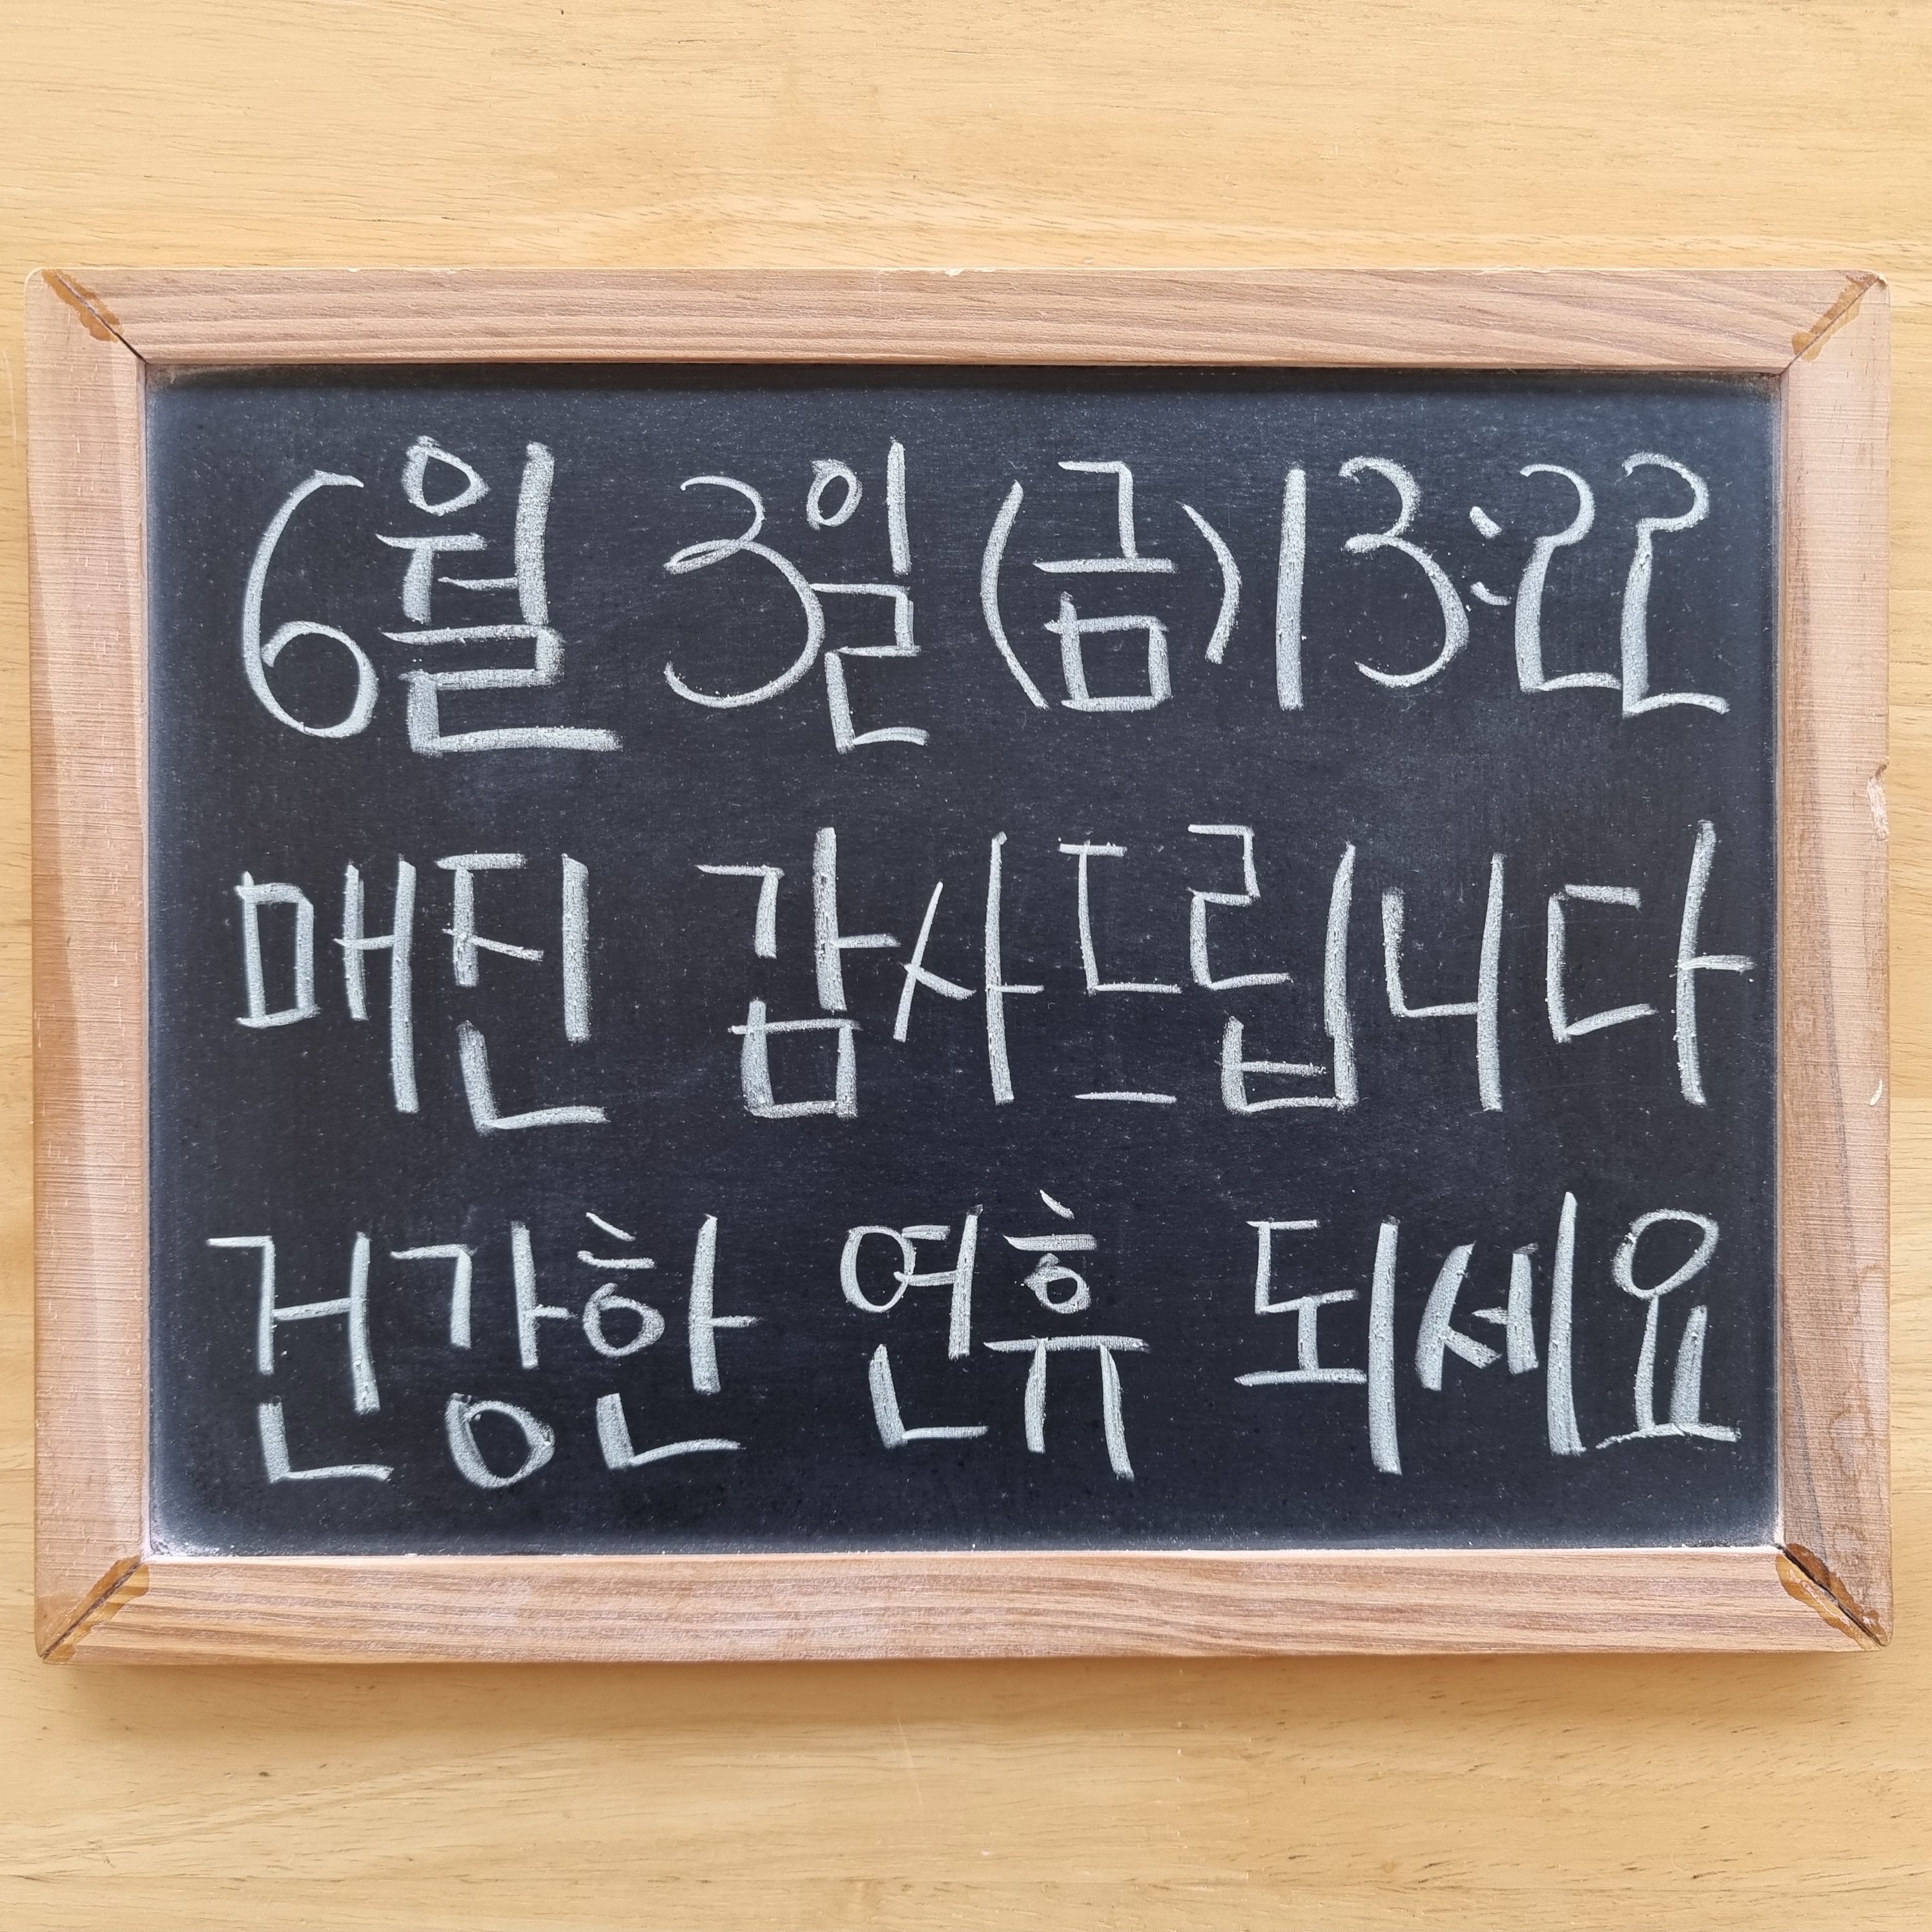 6월 3일(금)13:22
매진 감사드립니다
건강한 연휴 되세요